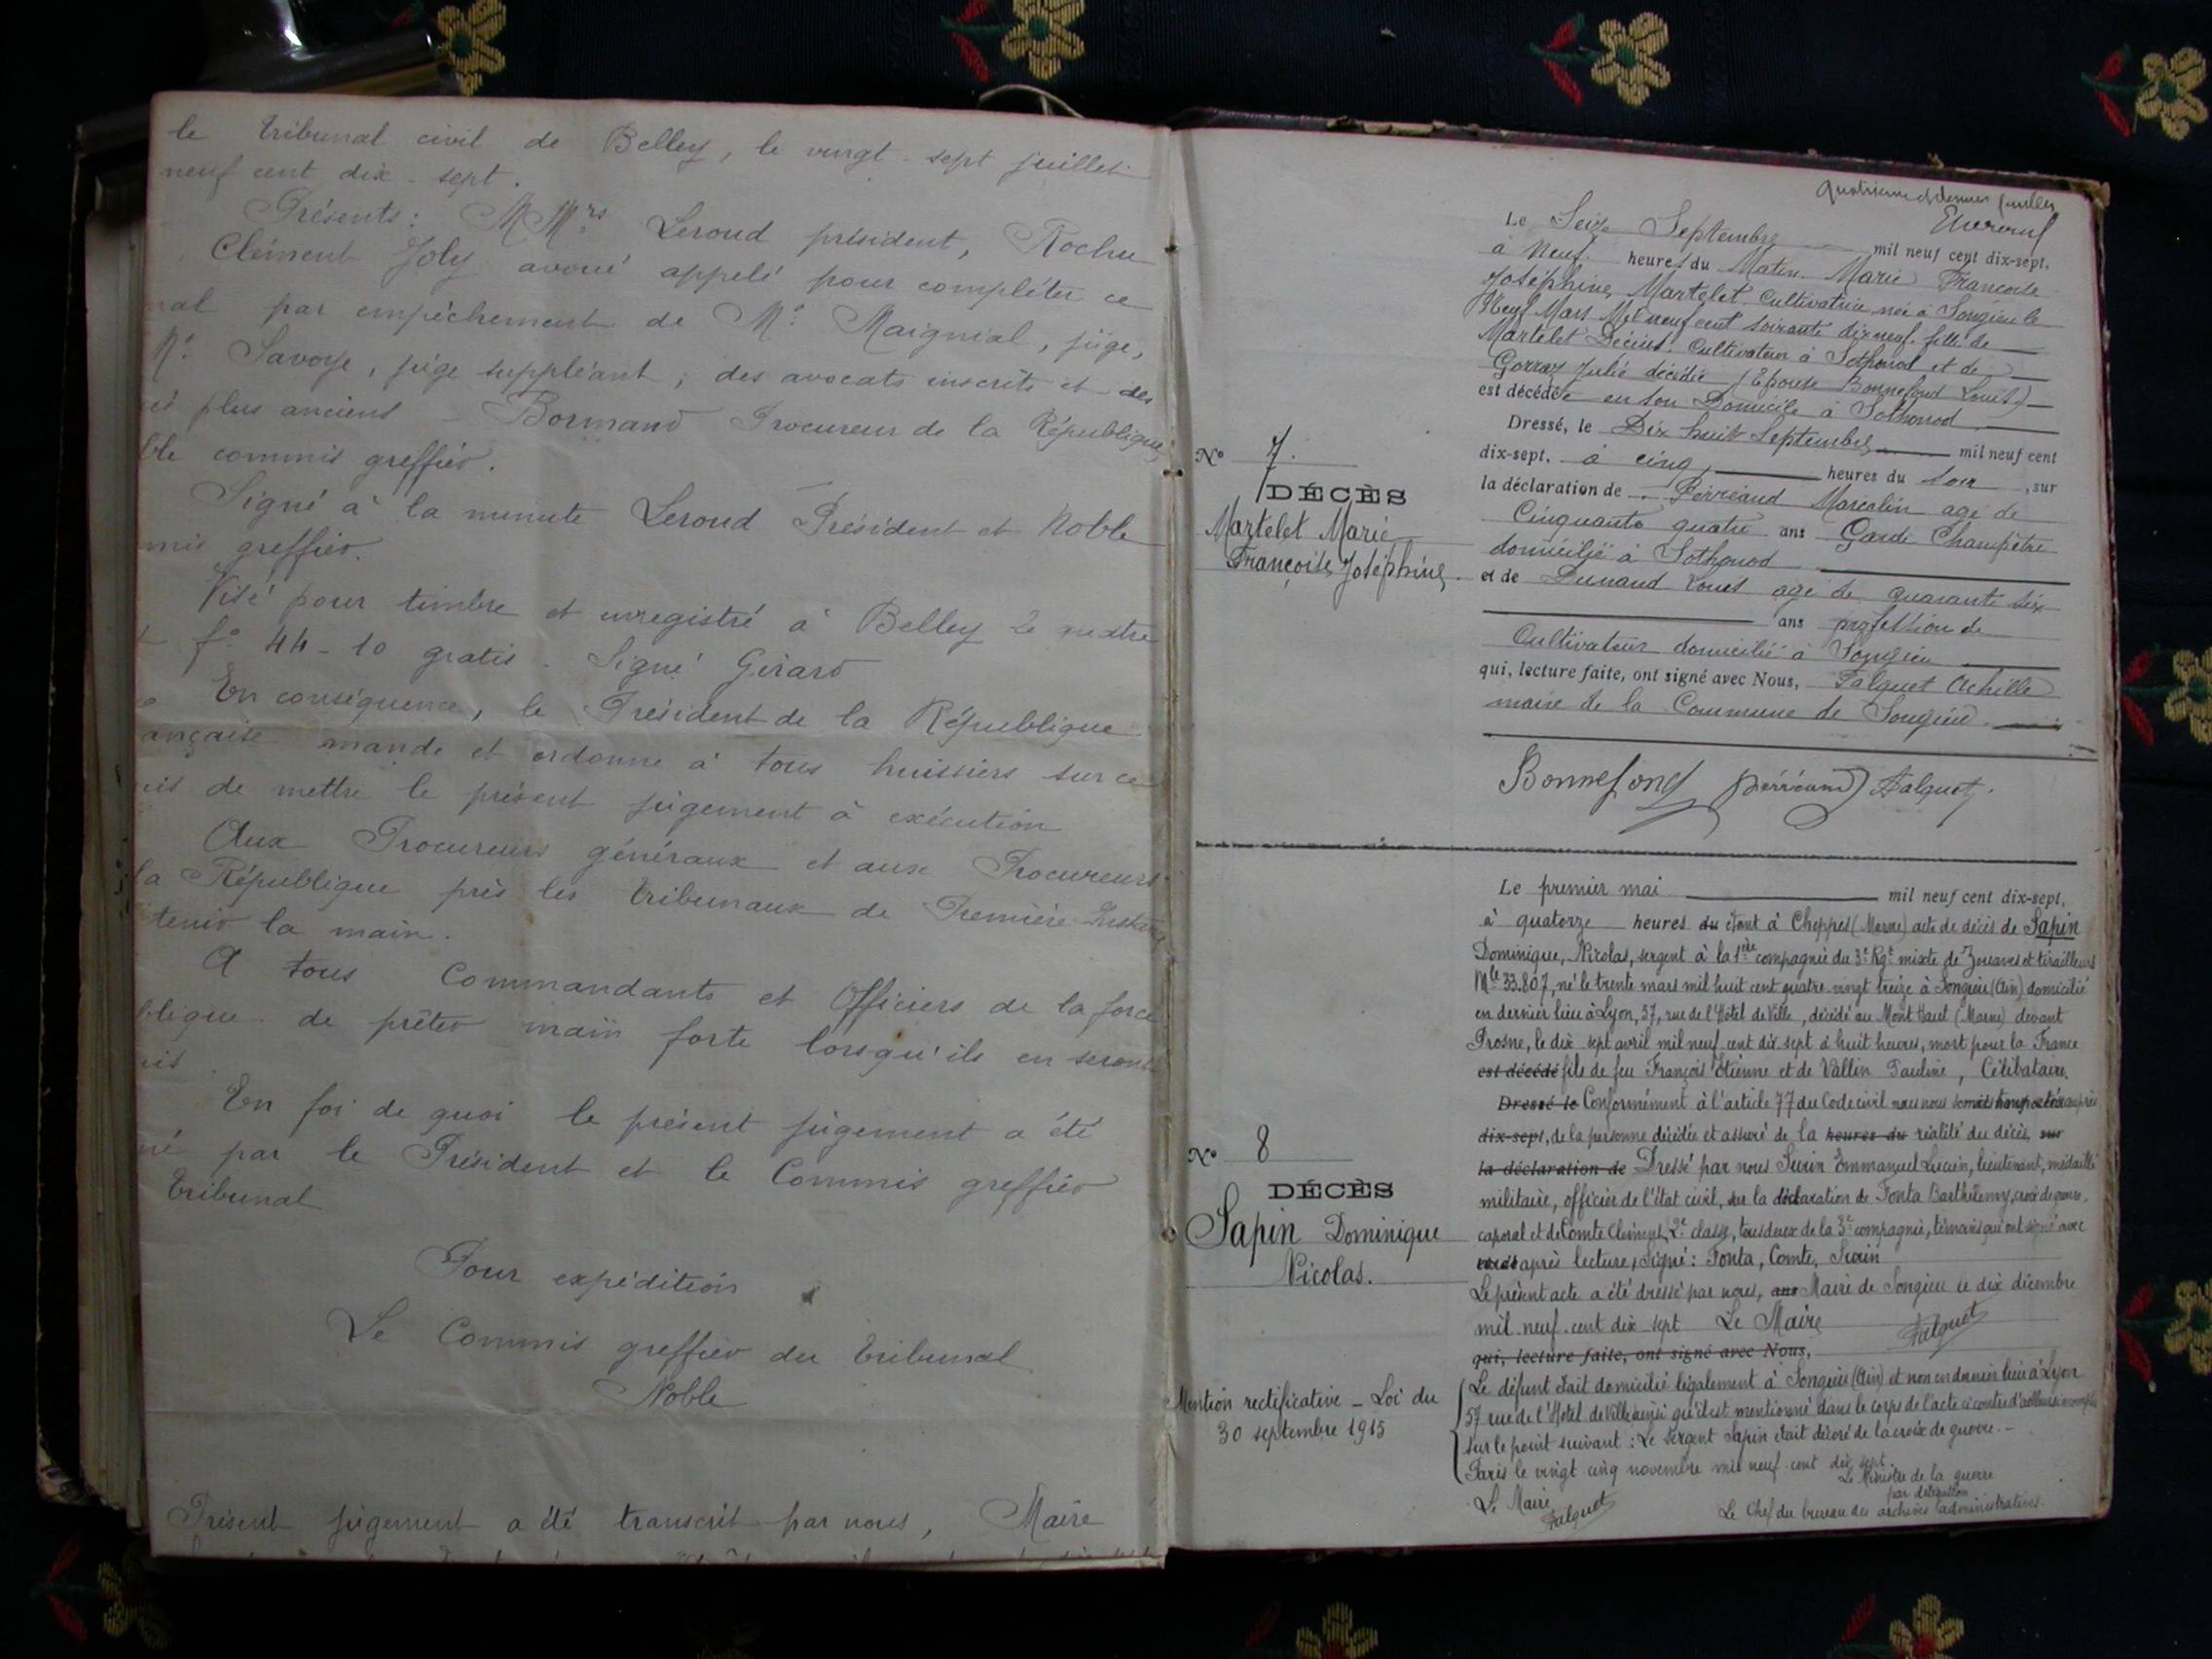 le tribunal civil de Belley, le vingt-sept juillet
neuf cent dix-sept.
Présents: MMrs Leroud président, Rochu
Clément Joly avoué appelé pour compléter ce
nal par empêchement de Mr. Maignial, juge,
Mr. Savoye, juge suppléant, des avocats inscrits et des
és plus anciens - Bormand Procureur de la République
ble commis greffier.
Signé à la minute Leroud Président et Noble
mis greffier.
Visé pour timbre et enregistré à Belley le quatre
f° 44-10 gratis - Signé Girard
En conséquence, le Président de la République
ançaise mande et ordonne à tous huissiers sur ce
uis de mettre le présent jugement à exécution
Aux Procureurs généraux et aux Procureurs
la République près les tribunaux de Première Instance
tenir la main.
A tous Commandants et Officiers de la force
blique de prêter main forte lorsqu'ils en seront
uis
En foi de quoi le présent jugement a été
né par le Président et le Commis greffier
tribunal
Pour expédition
Le Commis greffier du tribunal
Noble
Présent jugement a été transcrit par nous, Maire
Quatrième et dernier feuillet
Le Seize Septembre mil neuf cent dix-sept,
à Neuf heures du Matin Marie Francoise
Joséphine Martelet Cultivatrice née à Songieu le
Neuf Mars Mil neuf cent soixante dix neuf. fille de
Martelet Décius. Cultivateur à Sothonod et de
Gorraz Julie décédée (Epouse Bonnefond Louis)
est décédée en son Domicile à Sothonod
Dressé, le Dix huit Septembre mil neuf cent
dix-sept, à cinq heures du soir, sur
la déclaration de Perréaud Marcelin agé de
Cinquante quatre ans Garde Champêtre
domicilié à Sothonod
et de Dunand Louis agé de quarante six
ans profession de
Cultivateur domicilié à Songieu
qui, lecture faite, ont signé avec Nous, Falquet Achille
maire de la Commune de Songieu.
Bonnefond Perréaud Falquet.
N° 7.
DÉCÈS
Martelet Marie
Françoise Joséphine.
Le premier mai mil neuf cent dix-sept,
à quatorze heures du étant à Cheppes (Marne) acte de décès de Sapin
Dominique, Nicolas, sergent à la 1ère compagnie du 3e Rgt mixte de Zouaves et tirailleurs
Mle 33.807, né le trente mars mil huit cent quatre-vingt treize à Songieu (Ain) domicilié
en dernier lieu à Lyon, 57, rue de l'Hôtel de Ville, décédé au Mont Haut (Marne) devant
Prosne, le dix sept avril mil neuf cent dix sept à huit heures, mort pour la France
est décédé fils de feu François Etienne et de Vallin Pauline, Célibataire.
Dressé le Conformément à l'article 77 du Code civil nous nous sommes transporté auprès
dix-sept, de la personne décédée et assuré de la heures du réalité du décès, sur
la déclaration de Dressé par nous Surin Emmanuel Lucien, lieutenant, médaillé
militaire, officier de l'état civil, sur la déclaration de Fonta Barthélemy, croix de guerre,
caporal et de Comte Clément, 2e classe, tous deux de la 3e compagnie, témoins qui ont signé avec
après lecture, signé: Fonta, Comte, Surin
Le présent acte a été dressé par nous, ans Maire de Songieu ce dix décembre
mil neuf cent dix sept Le Maire Falquet
qui, lecture faite, ont signé avec Nous,
N° 8
DÉCÈS
Sapin Dominique
Nicolas.
Mention rectificative - Loi du
30 septembre 1915
Le défunt était domicilié légalement à Songieu (Ain) et non en dernier lieu à Lyon
57 rue de l'Hôtel de Ville ainsi qu'il est mentionné dans le corps de l'acte ci contre d'ailleurs incomplet
sur le point suivant: Le Sergent Sapin était décoré de la croix de guerre. -
Paris le vingt cinq novembre mil neuf cent dix sept
Le Ministre de la guerre
par délégation
Le Chef du bureau des archives administratives.
Le Maire
Falquet